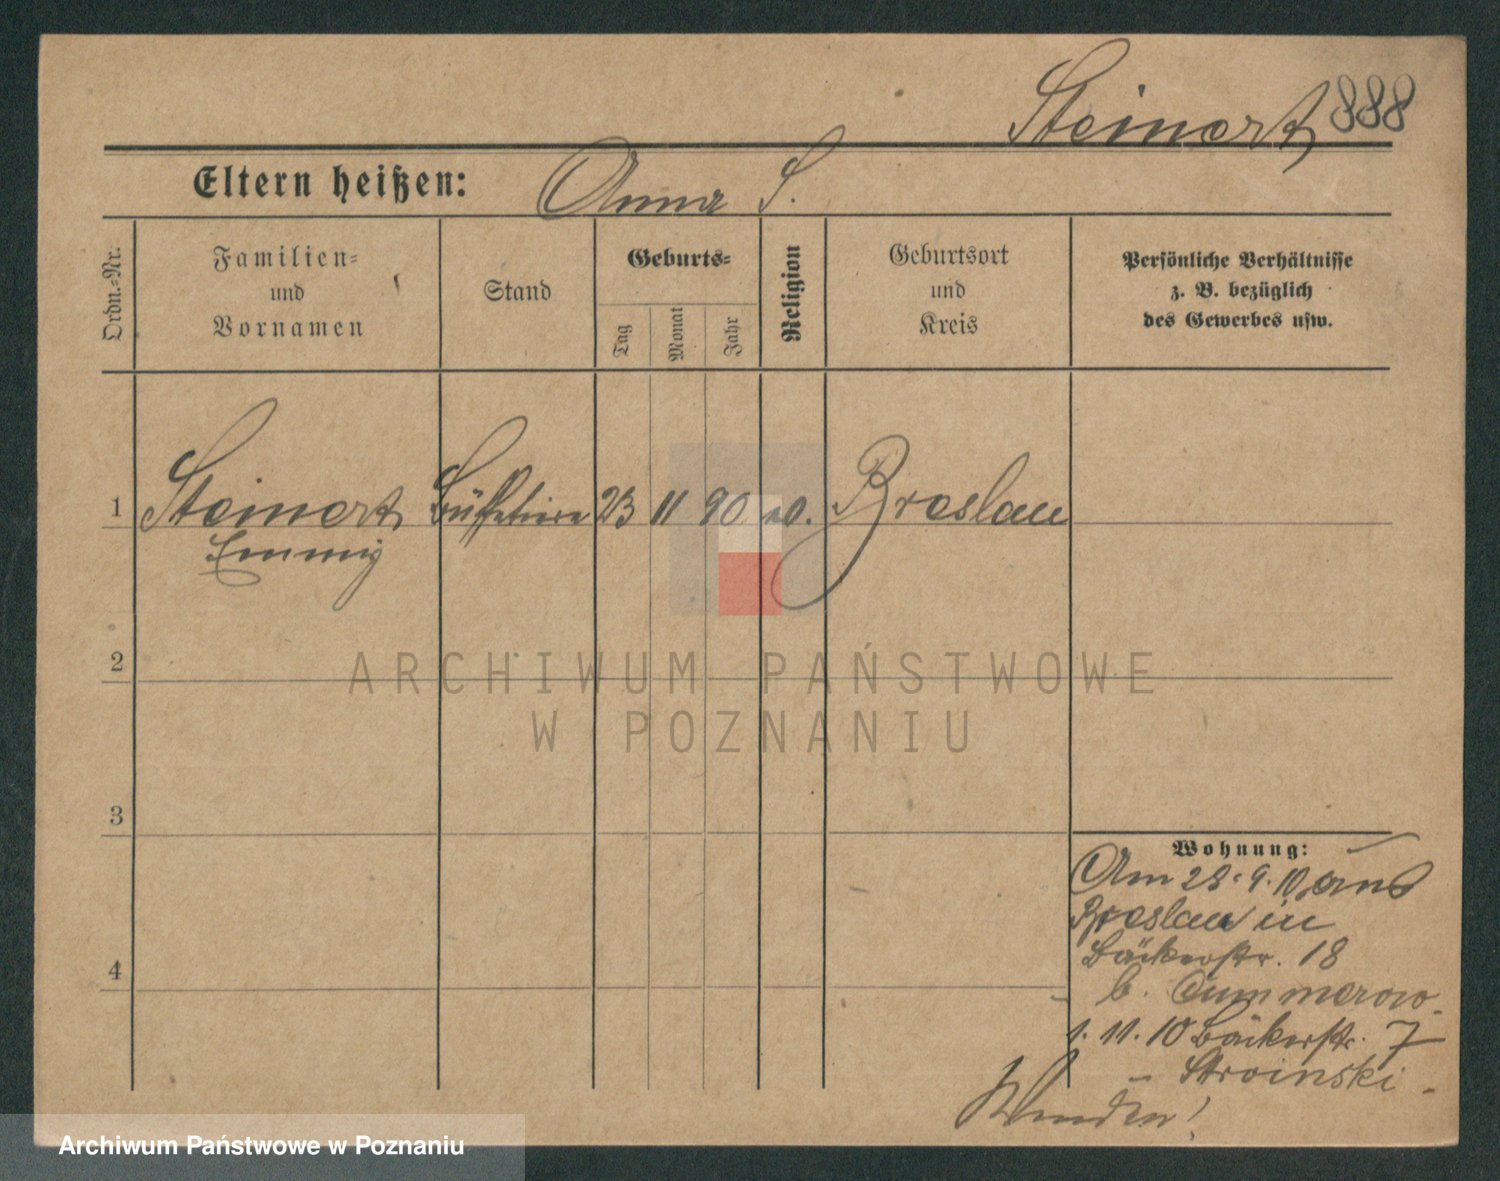 Steinert 888
Eltern heißen: Anna S.
Ordn.-Nr.
Familien-
und
Vornamen
Stand
Geburts-
Tag
Monat
Jahr
Religion
Geburtsort
und
Kreis
Persönliche Verhältnisse
z. B. bezüglich
des Gewerbes usw.
1 Steinert Büffetiere 23 11 90 Breslau
Emmy
2
3
4
Wohnung:
Am 28.9.10 aus
Breslau in
Bäckerstr. 18
b. Cummerow
1.11.10 Bäckerstr. 7
Stroinski
Wenden!
ARCHIWUM PAŃSTWOWE
W POZNANIU
Archiwum Państwowe w Poznaniu